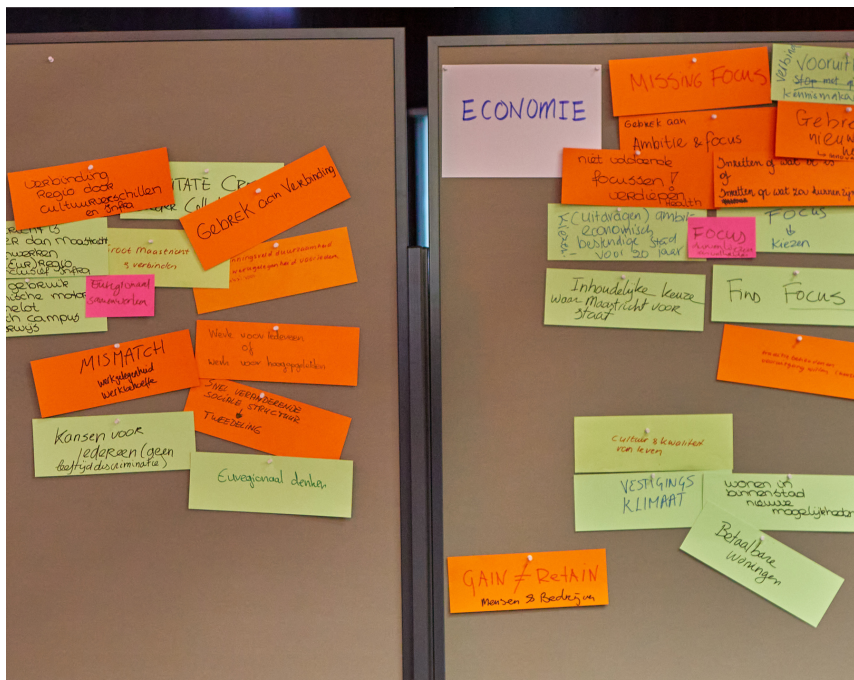 verbinding
Regio door
cultuurverschillen
en infra
GEBREK aan Verbinding
root Maastricht
& verbinden
Euregionaal
samenwerken
ER dan Maastricht
werken
clusief infra
gebruik
ische motor
elot
ch campus
rwijs
MISMATCH
werkgelegenheid
werkbehoefte
Werk voor iedereen
of
Werk voor hoogopgeleiden
SNEL VERANDERENDE
SOCIALE STRUCTUUR
TWEEDELING
Kansen voor
iedereen (geen
leeftijddiscriminatie)
Euregionaal denken
ECONOMIE
MISSING FOCUS
VOORUIT
stop met
kennismaka
Gebrek aan
Ambitie & focus
Gebre
nieuw
niet voldoende
focussen!
verdiepen
Health
Inzetten op wat er is
of
Inzetten op wat zou kunnen zijn
(uitdragen) ambitie
- economisch
bestendige stad
- voor 20 jaar
FOCUS
FOCUS
kiezen
Inhoudelijke keuze
waar Maastricht voor
staat
Find Focus
Cultuur & kwaliteit
van leven
VESTIGINGS
KLIMAAT
wonen in
binnenstad
nieuwe
mogelijkheden
Betaalbare
woningen
GAIN ≠ RETAIN
Mensen & Bedrijven